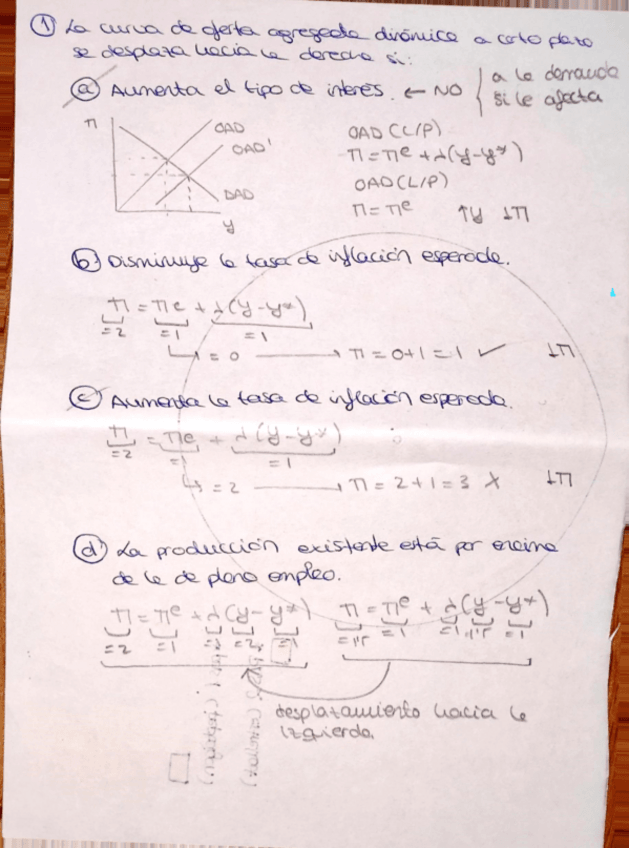 ① La curva de oferta agregada dinámica a corto plazo
se desplaza hacia la derecha si:
ⓐ Aumenta el tipo de interés. ← NO { a la demanda
si le afecta
π
OAD
OAD'
DAD
y
OAD (L/P)
π = πe + λ(y-y*)
OAD (L/P)
π = πe ↑y ↓π
ⓑ Disminuye la tasa de inflación esperada.
π = πe + λ(y-y*)
=2 =1 =1
↳ = 0 → π = 0+1 = 1 ✓ ↓π
ⓒ Aumenta la tasa de inflación esperada.
π = πe + λ(y-y*)
=2 =1 =1
↳ = 2 → π = 2+1 = 3 X ↓π
ⓓ La producción existente está por encima
de la de pleno empleo.
π = πe + λ(y- y*) π = πe + λ(y-y*)
=2 =1 =2 =1
desplazamiento hacia la
izquierda.